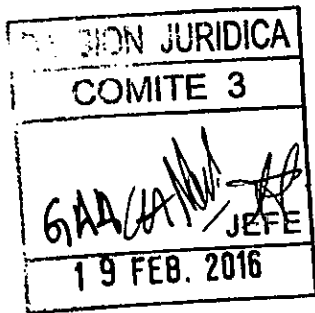 JURIDICA
COMITE 3
JEFE
19 FEB. 2016